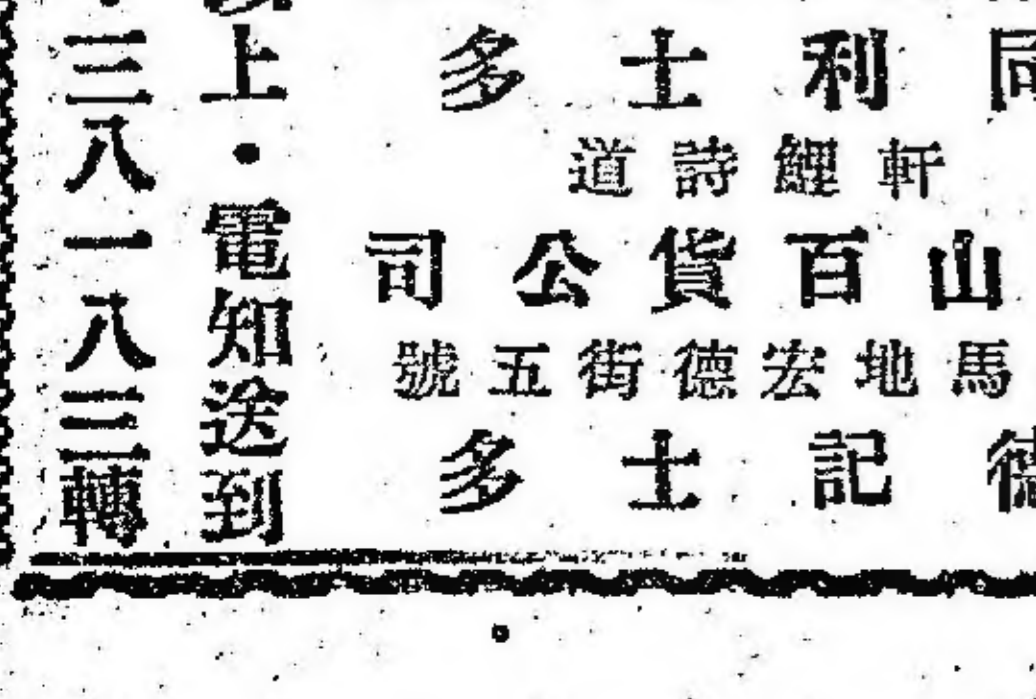 同利士多
軒鯉詩道
山百貨公司
馬地宏德街五號
德記士多
上・電知送到
・三八一八三轉